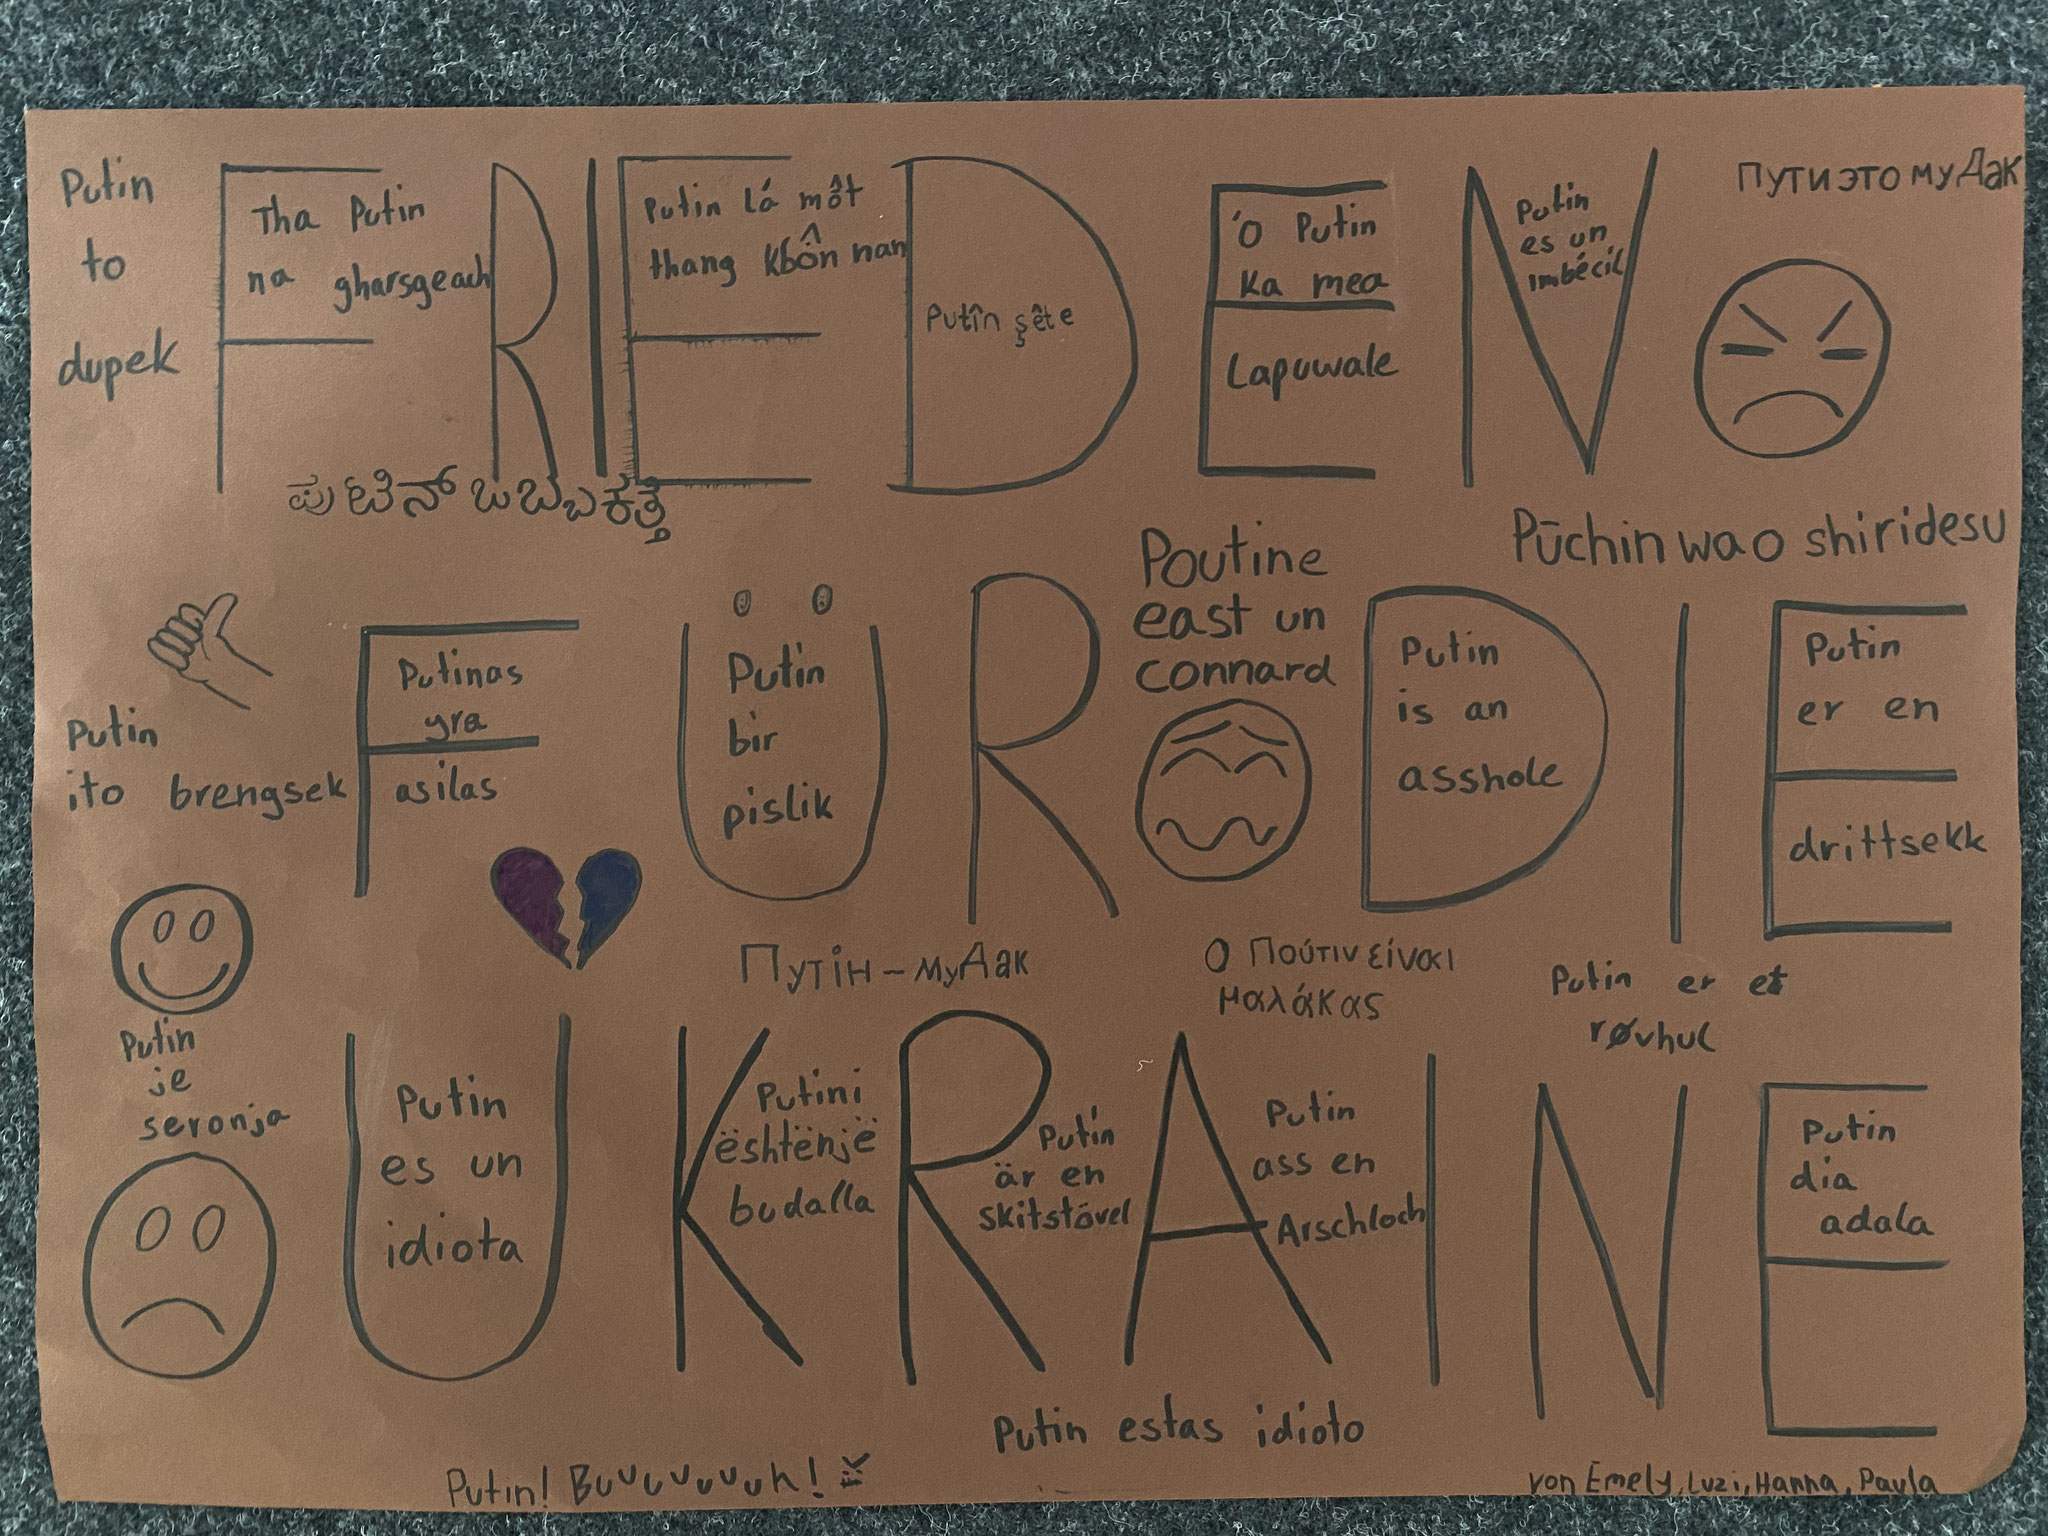 FRIEDEN
FÜR DIE
UKRAINE
Putin
to
dupek
Tha Putin
na gharsgeach
Putin là một
thang khôn nan
Putîn şête
'O Putin
ka mea
Lapuwale
Putin
es un
imbécil
Пути это муДак
Pūchin wa o shiridesu
Poutine
east un
connard
Putin
ito brengsek
Putinas
yra
asilas
Putin
bir
pislik
Putin
is an
asshole
Putin
er en
drittsekk
Путін – муДак
Ο Πούτιν είναι
μαλάκας
Putin er et
røvhul
Putin
je
seronja
Putin
es un
idiota
Putini
ështënjë
budalla
Putin
är en
skitstövel
Putin
ass en
Arschloch
Putin
dia
adala
Putin estas idioto
Putin! Buuuuuuuh!
von Emely, Luzi, Hanna, Paula